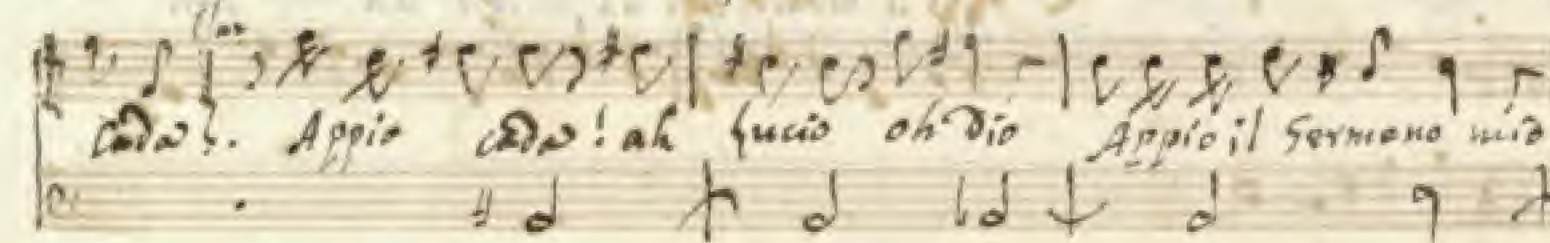 Clau
cada!. Appio cada! ah Lucio oh Dio Appio il Germano mio